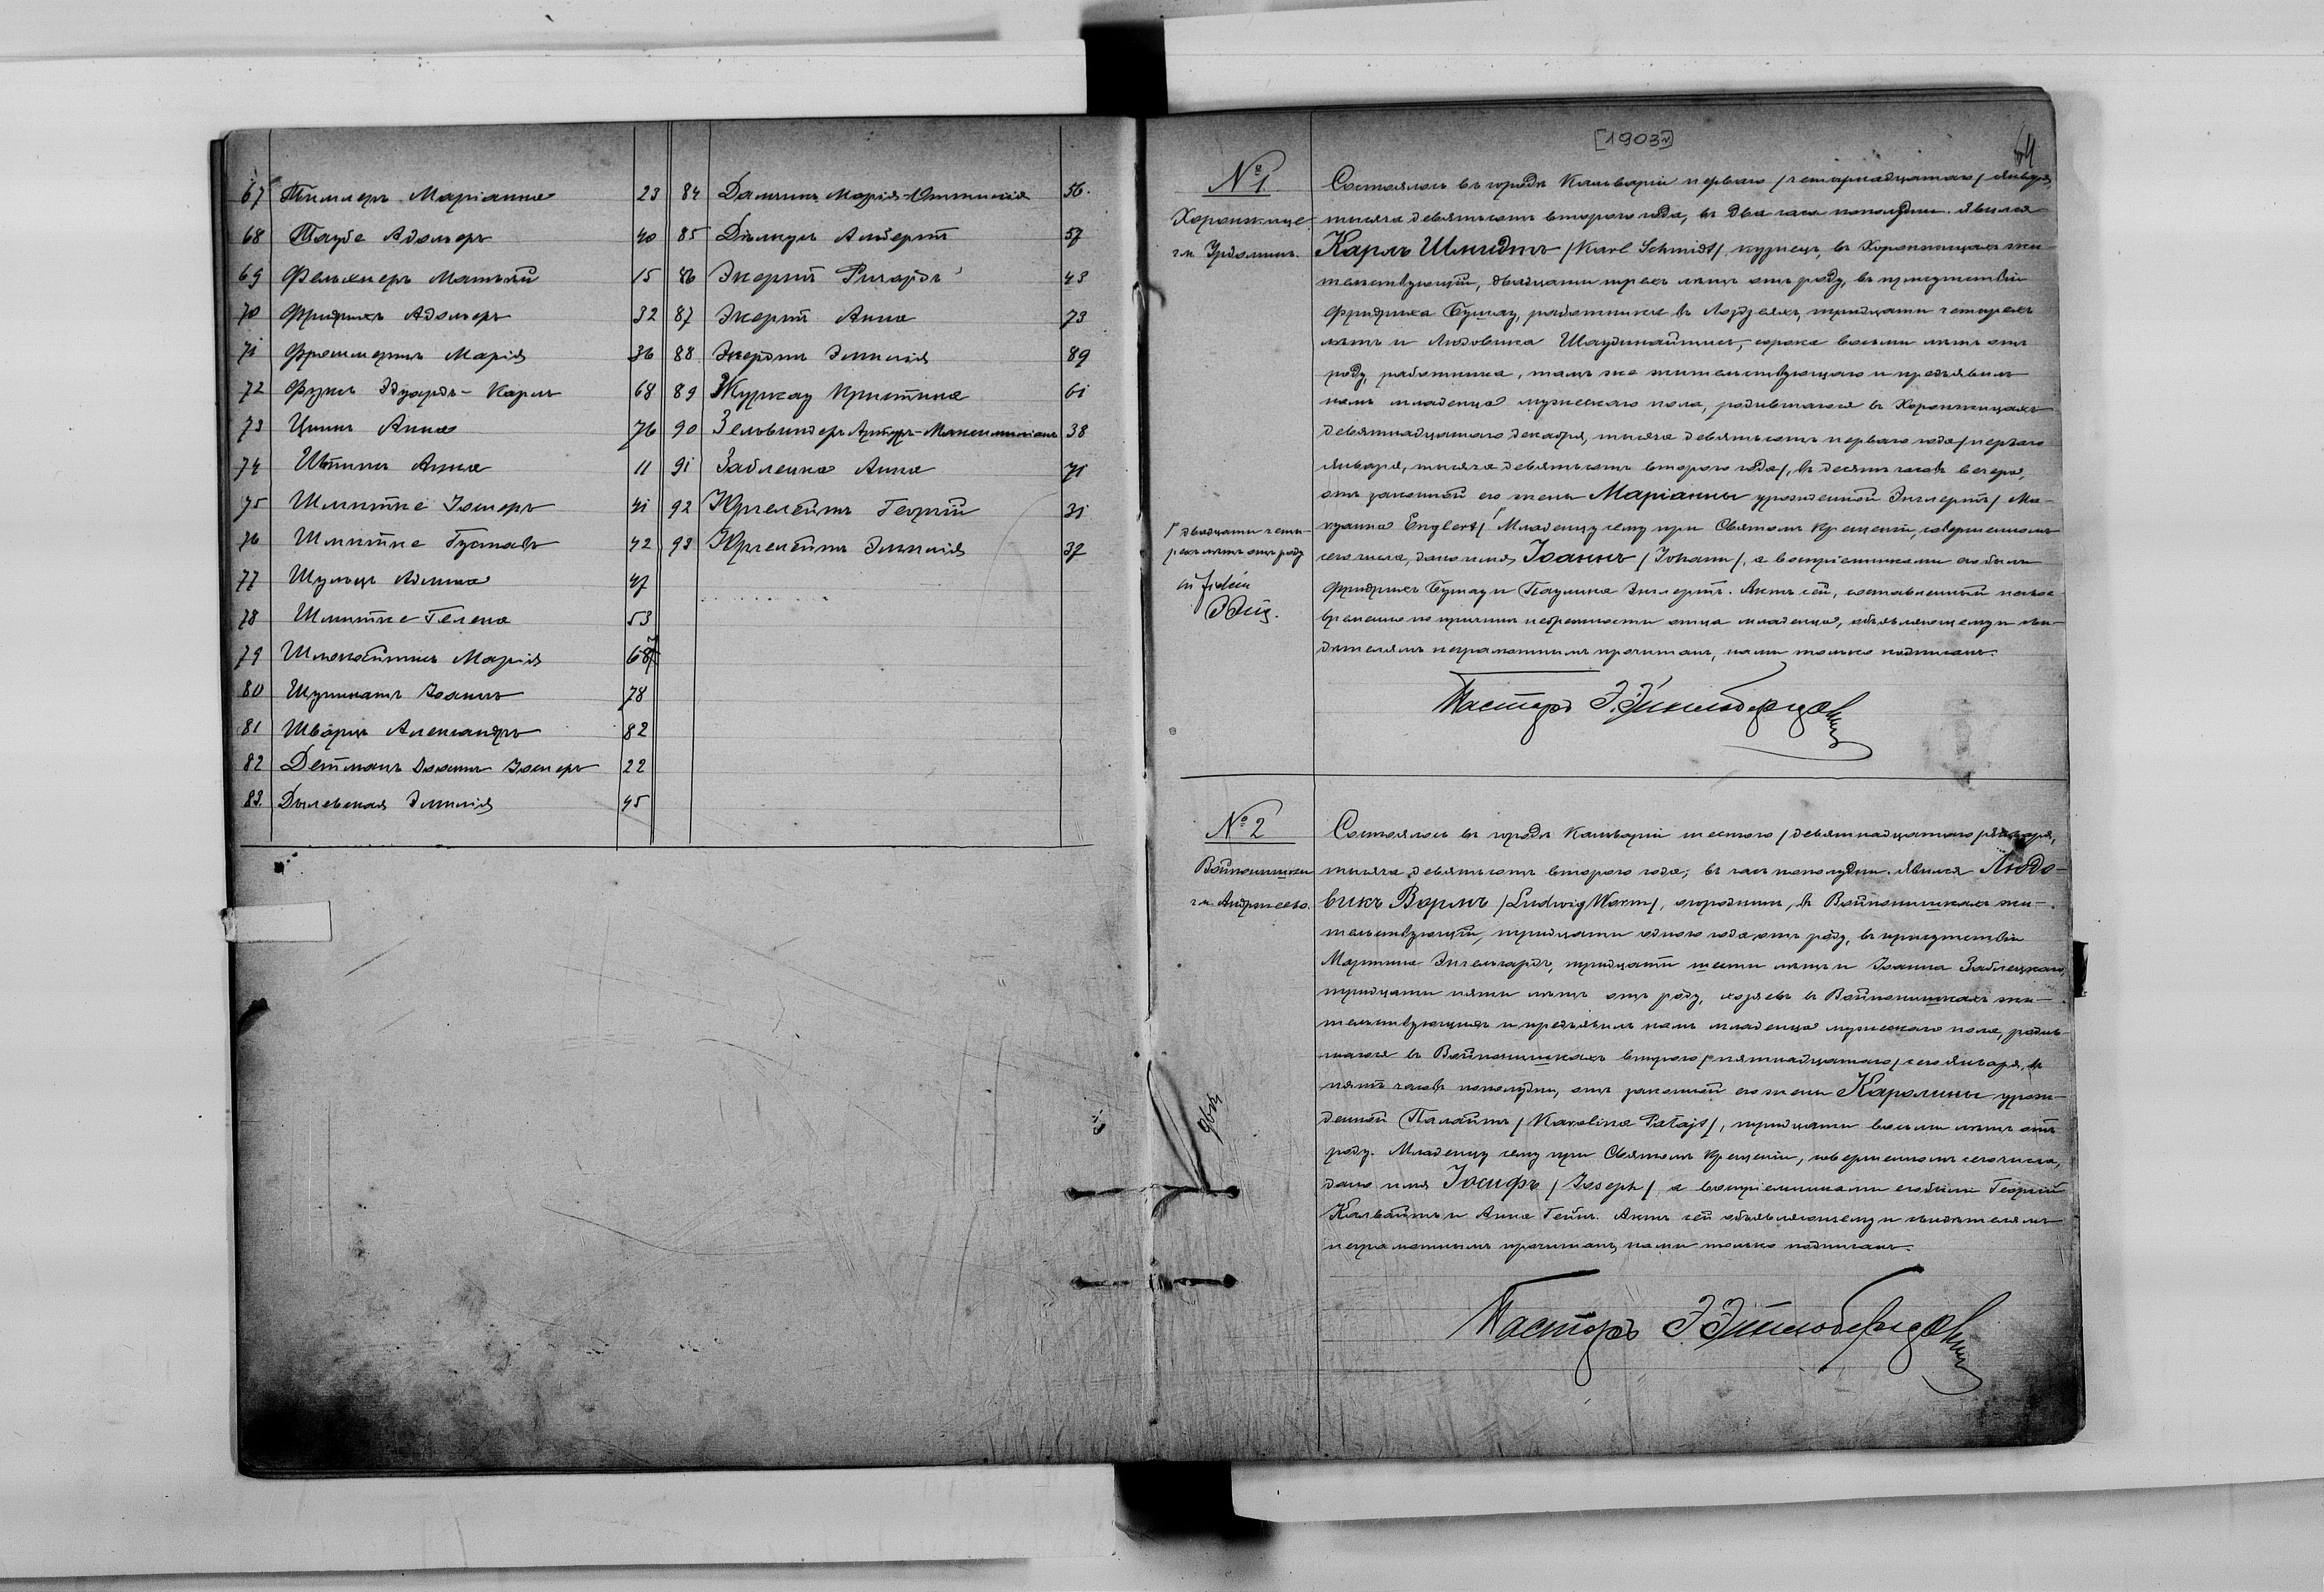 67 Тиллеръ Маріанна 23
68 Таубе Адольфъ 40
69 Фельхнеръ Матвѣй 15
70 Фридрихъ Адольфъ 32
71 Марія 36
72 Эдуардъ-Карлъ 68
73 Цинъ Анна 76
74 Анна 11
75 Шмитке Іосифъ 41
76 Шмитке Густавъ 42
77 Шульцъ 47
78 Шмитке Гелена 53
79 Марія 67
80 Іоаннъ 78
81 Шварцъ Александръ 82
82 Детманъ Іоаннъ Іосифъ 22
83. Дылевская Эмилія 45
84 Марія-Юстинія 56.
85 Альбертъ 57
86 Экертъ Ричардъ 43
87 Экертъ Анна 73
88 Экертъ Эмилія 89
89 Журкау Кристина 61
90 Зельвиндеръ Артуръ-Максимиліанъ 38
91 Заблецка Анна 71
92 Юргелейтъ Георгій 31
93 Юргелейтъ Эмилія 37
[1903 r]
64
№ 1
Хоронжице
гм. Урдоминъ.
Состоялось въ городѣ Кальваріи перваго /четырнадцатаго/ Января,
тысяча девятьсотъ второго года, въ два часа пополудни. Явился
Карлъ Шмидтъ /Karl Schmidt/, кузнецъ, въ Хоронжицахъ жи-
тельствующій, двадцати трехъ лѣтъ отъ роду, въ присутствіи
Фридриха Бушау, работника въ Лоздзеяхъ, тридцати четырехъ
лѣтъ и Людовика Шаудинайтисъ, сорока восьми лѣтъ отъ
роду, работника, тамъ же жительствующаго и предъявилъ
намъ младенца мужескаго пола, родившагося въ Хоронжицахъ
девятнадцатаго Декабря, тысяча девятьсотъ перваго года /перваго
Января, тысяча девятьсотъ второго года/, въ десять часовъ вечера,
отъ законной его жены Маріанны урожденной Энглертъ / Ma-
ryanna Englert/ Младенцу сему при Святомъ Крещеніи, совершенномъ
сего числа, дано имя Іоаннъ /Johann/, а воспріемниками его были
Фридрихъ Бушау и Паулина Энглертъ. Актъ сей, составленный несво-
временно по причинѣ небрежности отца младенца, объявляющему и сви-
дѣтелямъ неграмотнымъ прочитанъ, нами только подписанъ.
Г двадцати четы-
рехъ лѣтъ отъ роду
in fidem
Пасторъ
№ 2
Войпонишки
гм. Андржеево.
Состоялось въ городѣ Кальваріи шестого /девятнадцатаго/ Января,
тысяча девятьсотъ второго года, въ часъ пополудни. Явился Людо-
викъ Вормъ /Ludwig Worm/, огородникъ, въ Войпонишкахъ жи-
тельствующій, тридцати одного года отъ роду, въ присутствіи
Мартина Энгельгардъ, тридцати шести лѣтъ и Іоанна Заблецкаго,
тридцати пяти лѣтъ отъ роду, хозяевъ въ Войпонишкахъ жи-
тельствующихъ и предъявилъ намъ младенца мужескаго пола, родив-
шагося въ Войпонишкахъ второго /пятнадцатаго/ сего Января, въ
пять часовъ пополудни, отъ законной его жены Каролины урож-
денной Палайтъ /Karolina Pałajt/, тридцати восьми лѣтъ отъ
роду. Младенцу сему при Святомъ Крещеніи, совершенномъ сего числа,
дано имя Іосифъ /Joseph/, а воспріемниками его были Георгій
Калвайтъ и Анна Гейнъ. Актъ сей объявляющему и свидѣтелямъ
неграмотнымъ прочитанъ, нами только подписанъ.
Пасторъ